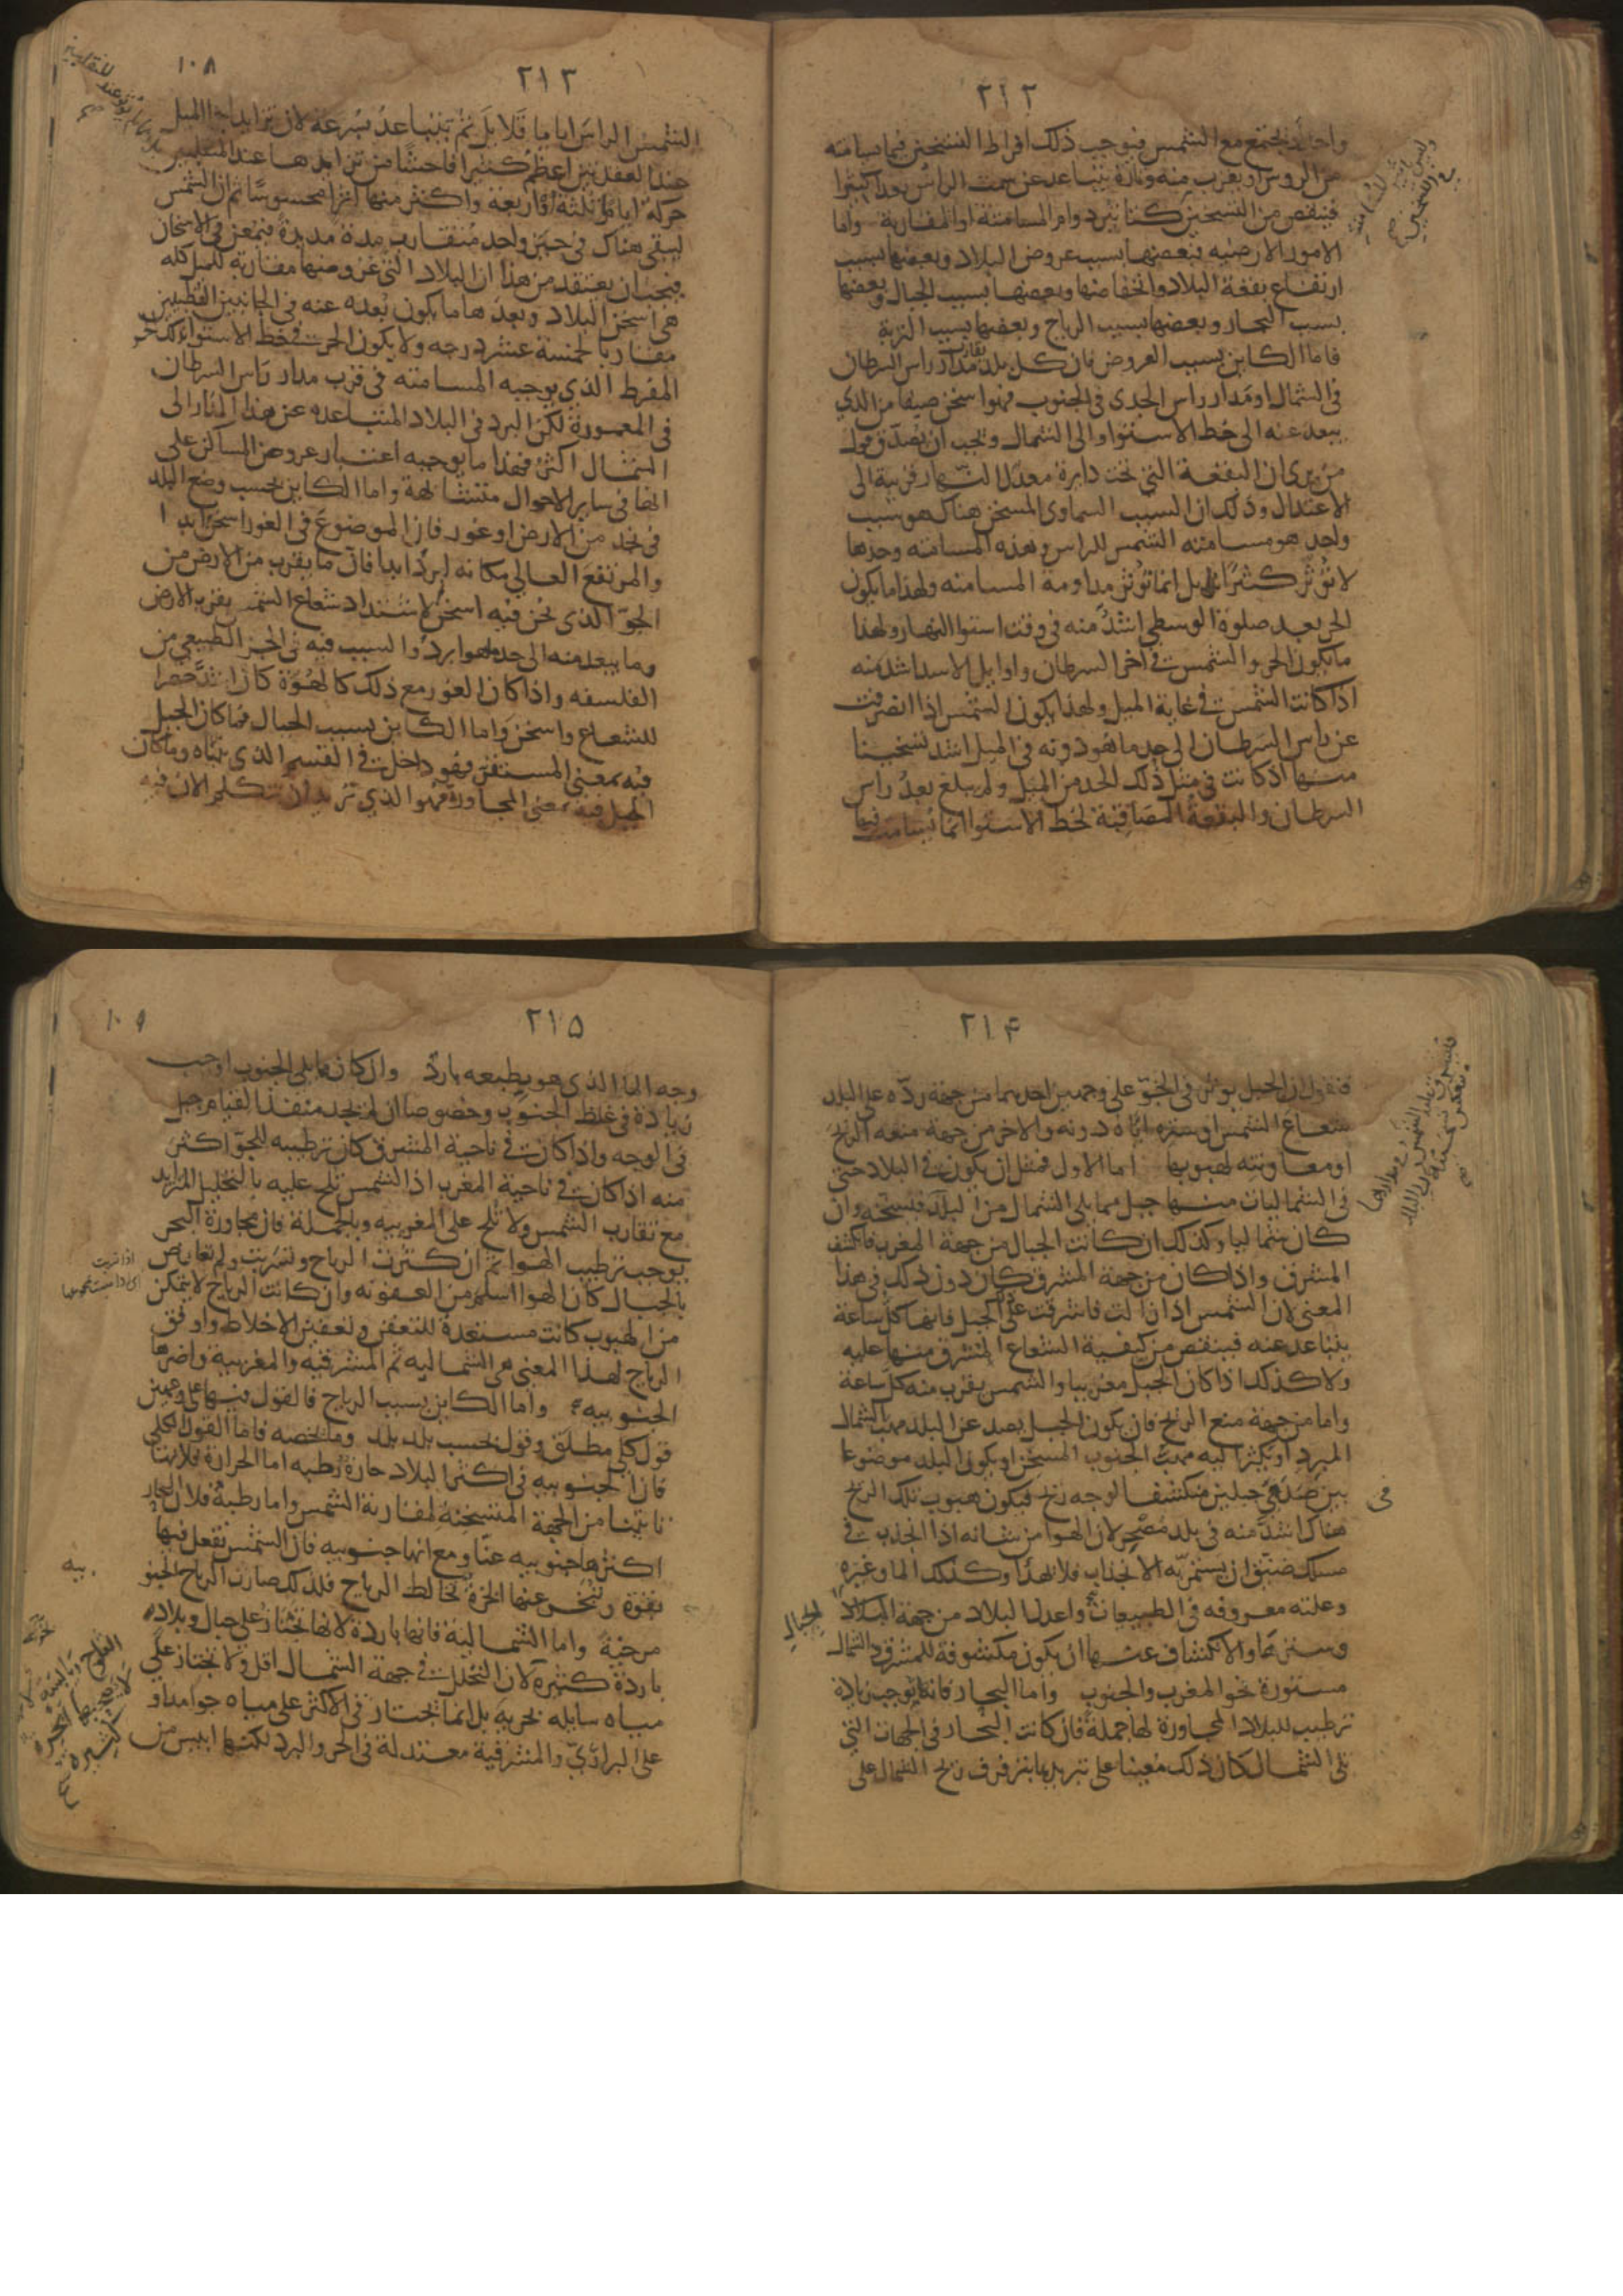 ٢١٢
واحد يجتمع مع الشمس فيوجب ذلك افراط التسخين فيما يسامته
من الروس او يقرب منه وتارة يتباعد عن سمت الراس بعدا كثيرا
فينقص من التسخين كتاثير دوام المسامتة او المقاربة واما
الامور الارضيه فبعضها بسبب عروض البلاد وبعضها بسبب
ارتفاع بقعة البلاد وانخفاضها وبعضها بسبب الجبال وبعضها
بسبب البحار وبعضها بسبب الرياح وبعضها بسبب التربة
فاما الكاين بسبب العروض فان كل بلد يقارب مدار راس السرطان
فى الشمال او مدار راس الجدى فى الجنوب فهو اسخن صيفا من الذي
يبعد عنه الى خط الاستوا والى الشمال ويجب ان يصدق قول
من يرى ان البقعة التي تحت دايرة معدل النهار قريبة الى
الاعتدال وذلك ان السبب السماوى المسخن هناك هو سبب
واحد هو مسامته الشمس للراس وهذه المسامته وحدها
لا تؤثر كثير اثر بل انما تؤثر مداومة المسامته ولهذا ما يكون
الحر بعد صلوة الوسطى اشد منه فى وقت استوا النهار ولهذا
ما يكون الحر والشمس في اخر السرطان واوايل الاسد اشد منه
اذا كانت الشمس في غاية الميل ولهذا يكون الشمس اذا انصرفت
عن راس السرطان الى حد ما هو دونه فى الميل اشد تسخينا
منها اذ كانت فى مثل ذلك الحد من الميل ولم يبلغ بعد راس
السرطان والبقعة المصاقبة لخط الاستوا انما تسامت فيها
٢١٣
١٠٨
الشمس الراس اياما قلايل ثم تتباعد بسرعة لان تزايد الميل
عند العقدتين اعظم كثيرا فاحشا من تزايدها عند المنقلبين
حركة ايام ثلثة او اربعة واكثر منها اثرا محسوسا ثم ان الشمس
ليبقى هناك فى حيز واحد متقارب مدة مديدة فيمعن فى الاسخان
فيجب ان يعتقد من هذا ان البلاد التى عروضها مقاربة للميل كله
هى اسخن البلاد وبعدها ما يكون بعده عنه فى الجانبين القطبيين
مقاربا لخمسة عشر درجه ولا يكون الحر في خط الاستواء كذلك
المفرط الذي يوجبه المسامته فى قرب مدار راس السرطان
فى المعمورة لكن البرد فى البلاد المتباعده عن هذا المدار الى
الشمال اكثر فهذا ما يوجبه اعتبار عروض المساكن على
انها فى ساير الاحوال متشابهة واما الكاين بحسب وضع البلد
فى نجد من الارض او غور فان الموضوع فى الغور اسخن ابدا
والمرتفع العالي مكانه ابرد ابدا فان ما يقرب من الارض من
الجو الذى نحن فيه اسخن لاشتداد شعاع الشمس بقرب الارض
وما يبعد منه الى حد هو ابرد والسبب فيه فى الجز الطبيعى من
الفلسفه واذا كان الغور مع ذلك كالهوة كان اشد حصرا
للشعاع واسخن واما الكاين بسبب الجبال فما كان الجبل
فيه بمعنى المستقر فهو داخل في القسم الذى بيناه وما كان
الجبل فيه بمعنى المجاورة فهو الذي نريد ان نتكلم الان فيه
٢١٤
فنقول ان الجبل يوثر فى الجو على وجهين احدهما من جهة رده على البلد
شعاع الشمس او ستره اياه دونه والاخر من جهة منعه الريح
او معاونته لهبوبها اما الاول فمثل ان يكون فى البلاد حتى
فى الشماليات منها جبل مما يلى الشمال من البلد فيسخنه وان
كان شماليا وكذلك ان كانت الجبال من جهة المغرب فانكشف
المشرق واذا كان من جهة المشرق كان دون ذلك فى هذا
المعنى لان الشمس اذا زالت فاشرقت على ذلك الجبل فانها كل ساعة
يتباعد عنه فينقص من كيفية الشعاع المشرق منها عليه
ولا كذلك اذا كان الجبل مغربيا والشمس يقرب منه كل ساعة
واما من جهة منع الريح فان يكون الجبل يصد عن البلد مهب الشمال
المبرد او يكثر اليه مهب الجنوب المسخن او يكون البلد موضوعا
بين صدفى جبلين منكشفا لوجه ريح فيكون هبوب تلك الريح
فى
هناك اشد منه فى بلد مصحر لان الهوا من شانه اذا انجذب فى
مسلك ضيق ان يستمر به الانجذاب فلا يهدأ وكذلك الما وغيره
وعلته معروفه فى الطبيعيات واعدل البلاد من جهة البلاد
الجبال
وسترها والانكشاف عنها ان يكون مكشوفة للمشرق والشمال
مستورة نحو المغرب والجنوب واما البحار فانها توجب زيادة
ترطيب للبلاد المجاورة لها جملة فان كانت البحار فى الجهات التى
تلى الشمال كان ذلك معينا على تبريدها بترفرف ريح الشمال على
٢١٥
١٠٩
وجه الما الذى هو بطبعه بارد وان كان مما يلى الجنوب اوجب
زيادة فى غلظ الجنوب وخصوصا ان لم يجد منفذا لقيام جبل
فى الوجه واذا كانت في ناحية المشرق كان ترطيبه للجو اكثر
منه اذا كان في ناحية المغرب اذ الشمس تلح عليه بالتحليل المتزايد
مع تقارب الشمس ولا تلح على المغربيه وبالجملة فان مجاورة البحر
يوجب ترطيب الهوا ثم ان كثرت الرياح وتسربت ولم تعارض
بالجبال كان الهوا اسلم من العفونه وان كانت الرياح لا يتمكن
من الهبوب كانت مستعدة للتعفن وتعفين الاخلاط واوفق
الرياح لهذا المعنى هى الشماليه ثم المشرقيه والمغربية واضرها
الجنوبيه واما الكاين بسبب الرياح فالقول فيها على وجهين
قول كلى مطلق وقول بحسب بلد بلد وما يخصه فاما القول الكلى
فان الجنوبيه فى اكثر البلاد حارة رطبه اما الحرارة فلانها
تاتينا من الجهة المتسخنة لمقاربة الشمس واما رطبة فلان البحار
اكثرها جنوبيه عنا ومع انها جنوبيه فان الشمس تفعل فيها
بقوة وتبخر عنها ابخرة تخالط الرياح فلذلك صارت الرياح الجنو
بيه
مرخية واما الشمالية فانها باردة لانها تجتاز على جبال وبلاد
باردة كثيرة لان التحلل في جهة الشمال اقل ولا تجتاز على
مياه سايله بحريه بل انما تجتاز فى الاكثر على مياه جوامد او
على البرارى والمشرقية معتدلة فى الحر والبرد لكنها ايبس من